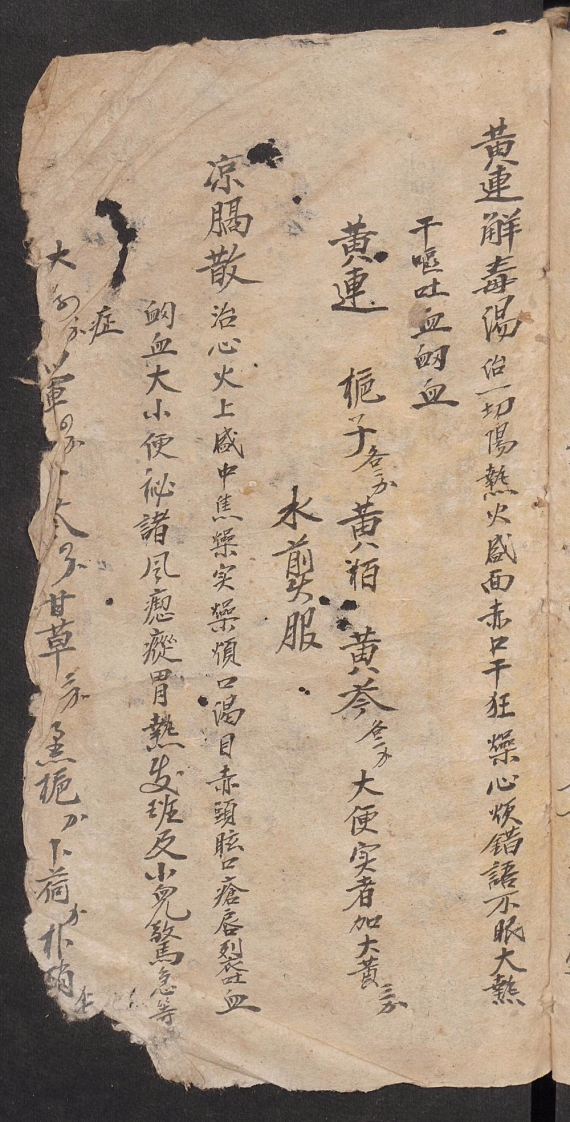 黄連觧毒湯治一切陽熱火盛面赤口干狂燥心烦错語不眠大熱
干嘔吐血衂血
黄連 栀子各三分 黄栢 黄芩各三分 大便实者加大黄三分
水煎服
凉膈散治心火上盛中焦燥实燥煩口渴目赤頭眩口瘡唇裂吐血
衂血大小便秘諸风瘛瘲胃熱发班及小兒驚急等
症
大 甘草 栀 卜荷 朴硝